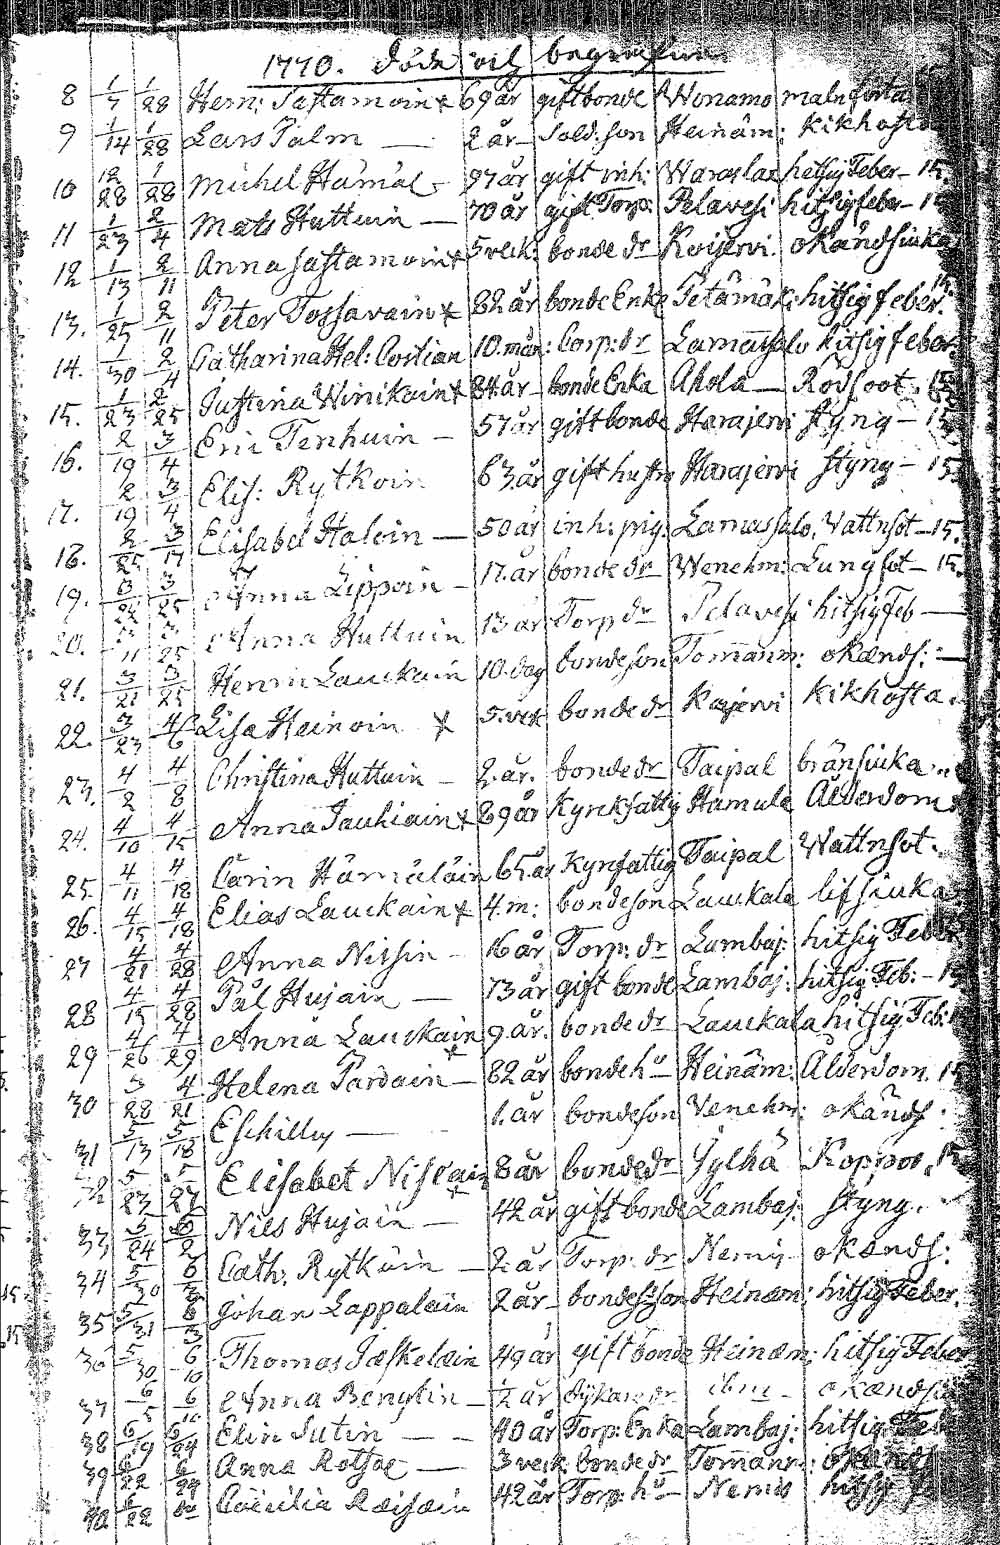 1770. döde och begrafne
8 1/7 1/28 Hen: Sastamoin 69 år gift bonde Wonamo maln förta
9 1/14 1/28 Lars Palm — 2 år sold: son Heinäm: Kikhosta
10 12/28 1/28 Michel Hämäl 97 år gift inh: Waraslax hetsig Feber 15.
11 1/23 2/4 Mats Huttuin — 70 år gift Torp: Pelavesi hitsig feber 15
12 1/13 2/11 Anna Sastamoin 5 veck: bonde dr Koijervi okänd siuka
13. 1/25 2/11 Peter Tossavain 82 år bonde Enke Petämäk: hitsig feber. 15.
14. 1/30 2/4 Catharina Hel: Costian 10. mån: Corp: dr Lamassalo hitsig feber.
15. 1/23 2/25 Justina Winikain 84 år bonde Enka Ahola — Rödsoot 15
16. 2/19 3/4 Eric Tenhuin — 57 år gift bonde Harajervi styng — 15
17. 2/19 3/4 Elis: Rytkoin 63. år gift hustr Harajervi styng — 15
18. 2/25 3/17 Elisabet Haloin — 50 år inh: pig. Lamassalo, Vattnsot — 15.
19. 3/25 Anna Lippoin — 17. år bonde dr Wenehm: Lungsot — 15.
20. 3/11 3/25 Anna Huttuin 13 år Torp dr Pelavesi hitsig Feb —
21. 3/21 3/25 Henric Lauckain 10. dag bonde son Tommanm: okænds: —
22. 3/23 4/6 Lisa Heinoin 5. vek bonde dr Kajervi Kikhosta.
23. 4/2 4/8 Christina Huttuin — 2. år. bonde dr Taipal bränsiuka
24. 4/10 4/15 Anna Jauhiain 89 år Kyrckfattig Hamula Ålderdom
25. 4/11 4/18 Carin Hämäläin 65. år Kyrfattig Taipal Wattnsot.
26. 4/15 4/18 Elias Lauckain 4. m: bondeson Lauckala lifsiuka
27 4/21 4/28 Anna Nissin — 16 år Torp: dr Lambaj: hitsig Feber
28 4/15 4/28 Pål Hujain — 73 år gift bonde Lambaj: hitsig Feb: — 15
29 4/26 4/29 Anna Lauckain 9 år. bonde dr Lauckala hitsig Feb:
30 3/28 4/21 Helena Pardain — 82 år bonde hu Heinäm: Ålderdom. 15
31 5/13 5/18 Eskill — 1. år bondeson Venehm: okänds:
32 5/23 5/27 Elisabet Niskain 8 år bonde dr Jylhä Koppor. 15
33 5/24 6/2 Nils Hujain — 42 år gift bonde Lambaj: Styng.
34 5/30 6/3 Cath: Rytköin — 2 år Torp: dr Nemij okænds:
35 5/31 6/3 Johan Lappalain 2 år bondes: son Heinæm: hitsig Feber.
36 5/30 6/10 Thomas Jæskelæin 49 år gift bonde Heinæm: hitsig Feber
37 6/5 6/10 Anna Bengtin — 1/2 år dr okændsi
38 6/19 6/24 Elin Sutin — — 40 år Torp: Enka Lambaj: hitsig Feb
39 6/22 6/29 Anna Rotsoe — 3 veck: bonde dr Tommanm: okænds
40 6/22 Cæcilia Ræisæin 42 år Torp: hu — Nemis hitsig